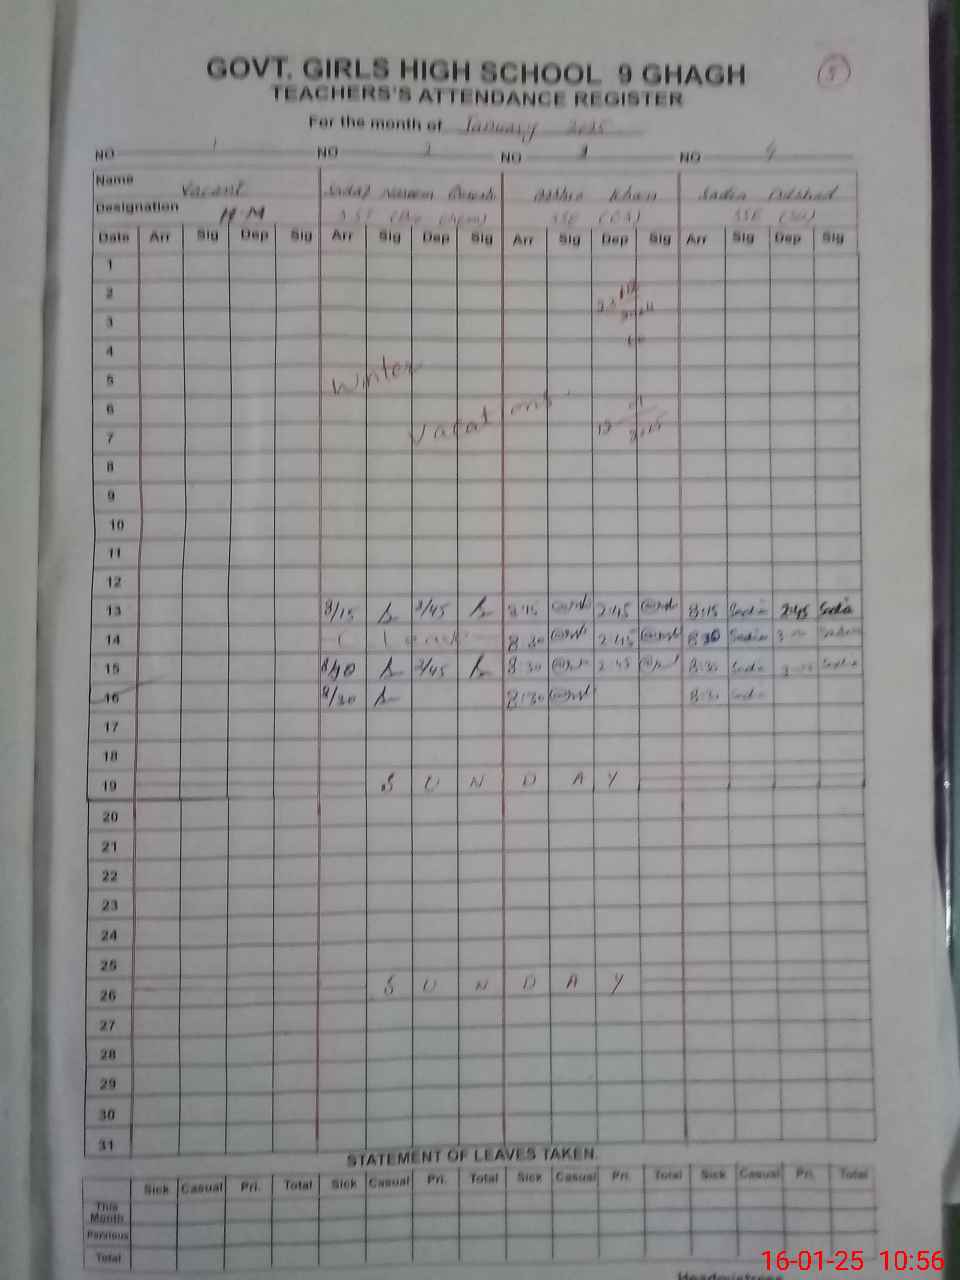 GOVT. GIRLS HIGH SCHOOL 9 GHAGH
5
TEACHERS'S ATTENDANCE REGISTER
For the month of January 2025
NO 1 NO 2 NO 3 NO 4
Name Vacant Naseem Khan Sadia
Designation H.M SST SSE SSE
Date Arr Sig Dep Sig Arr Sig Dep Sig Arr Sig Dep Sig Arr Sig Dep Sig
1
2
3
4
5 Winter
6 Vacations.
7
8
9
10
11
12
13 8/15 2/45 8:15 2:45 8:15 Sadia 2:45 Sadia
14 Leave 8:30 2:45 8:30 Sadia Sadia
15 8/40 2/45 8:30 2:45 8:30 Sadia Sadia
16 8/30 8:30 8:30 Sadia
17
18
19 S U N D A Y
20
21
22
23
24
25
26 S U N D A Y
27
28
29
30
31
STATEMENT OF LEAVES TAKEN.
Sick Casual Pri. Total Sick Casual Pri. Total Sick Casual Pri. Total Sick Casual Pri. Total
This Month
Pervious
Total
16-01-25 10:56
Headmistress